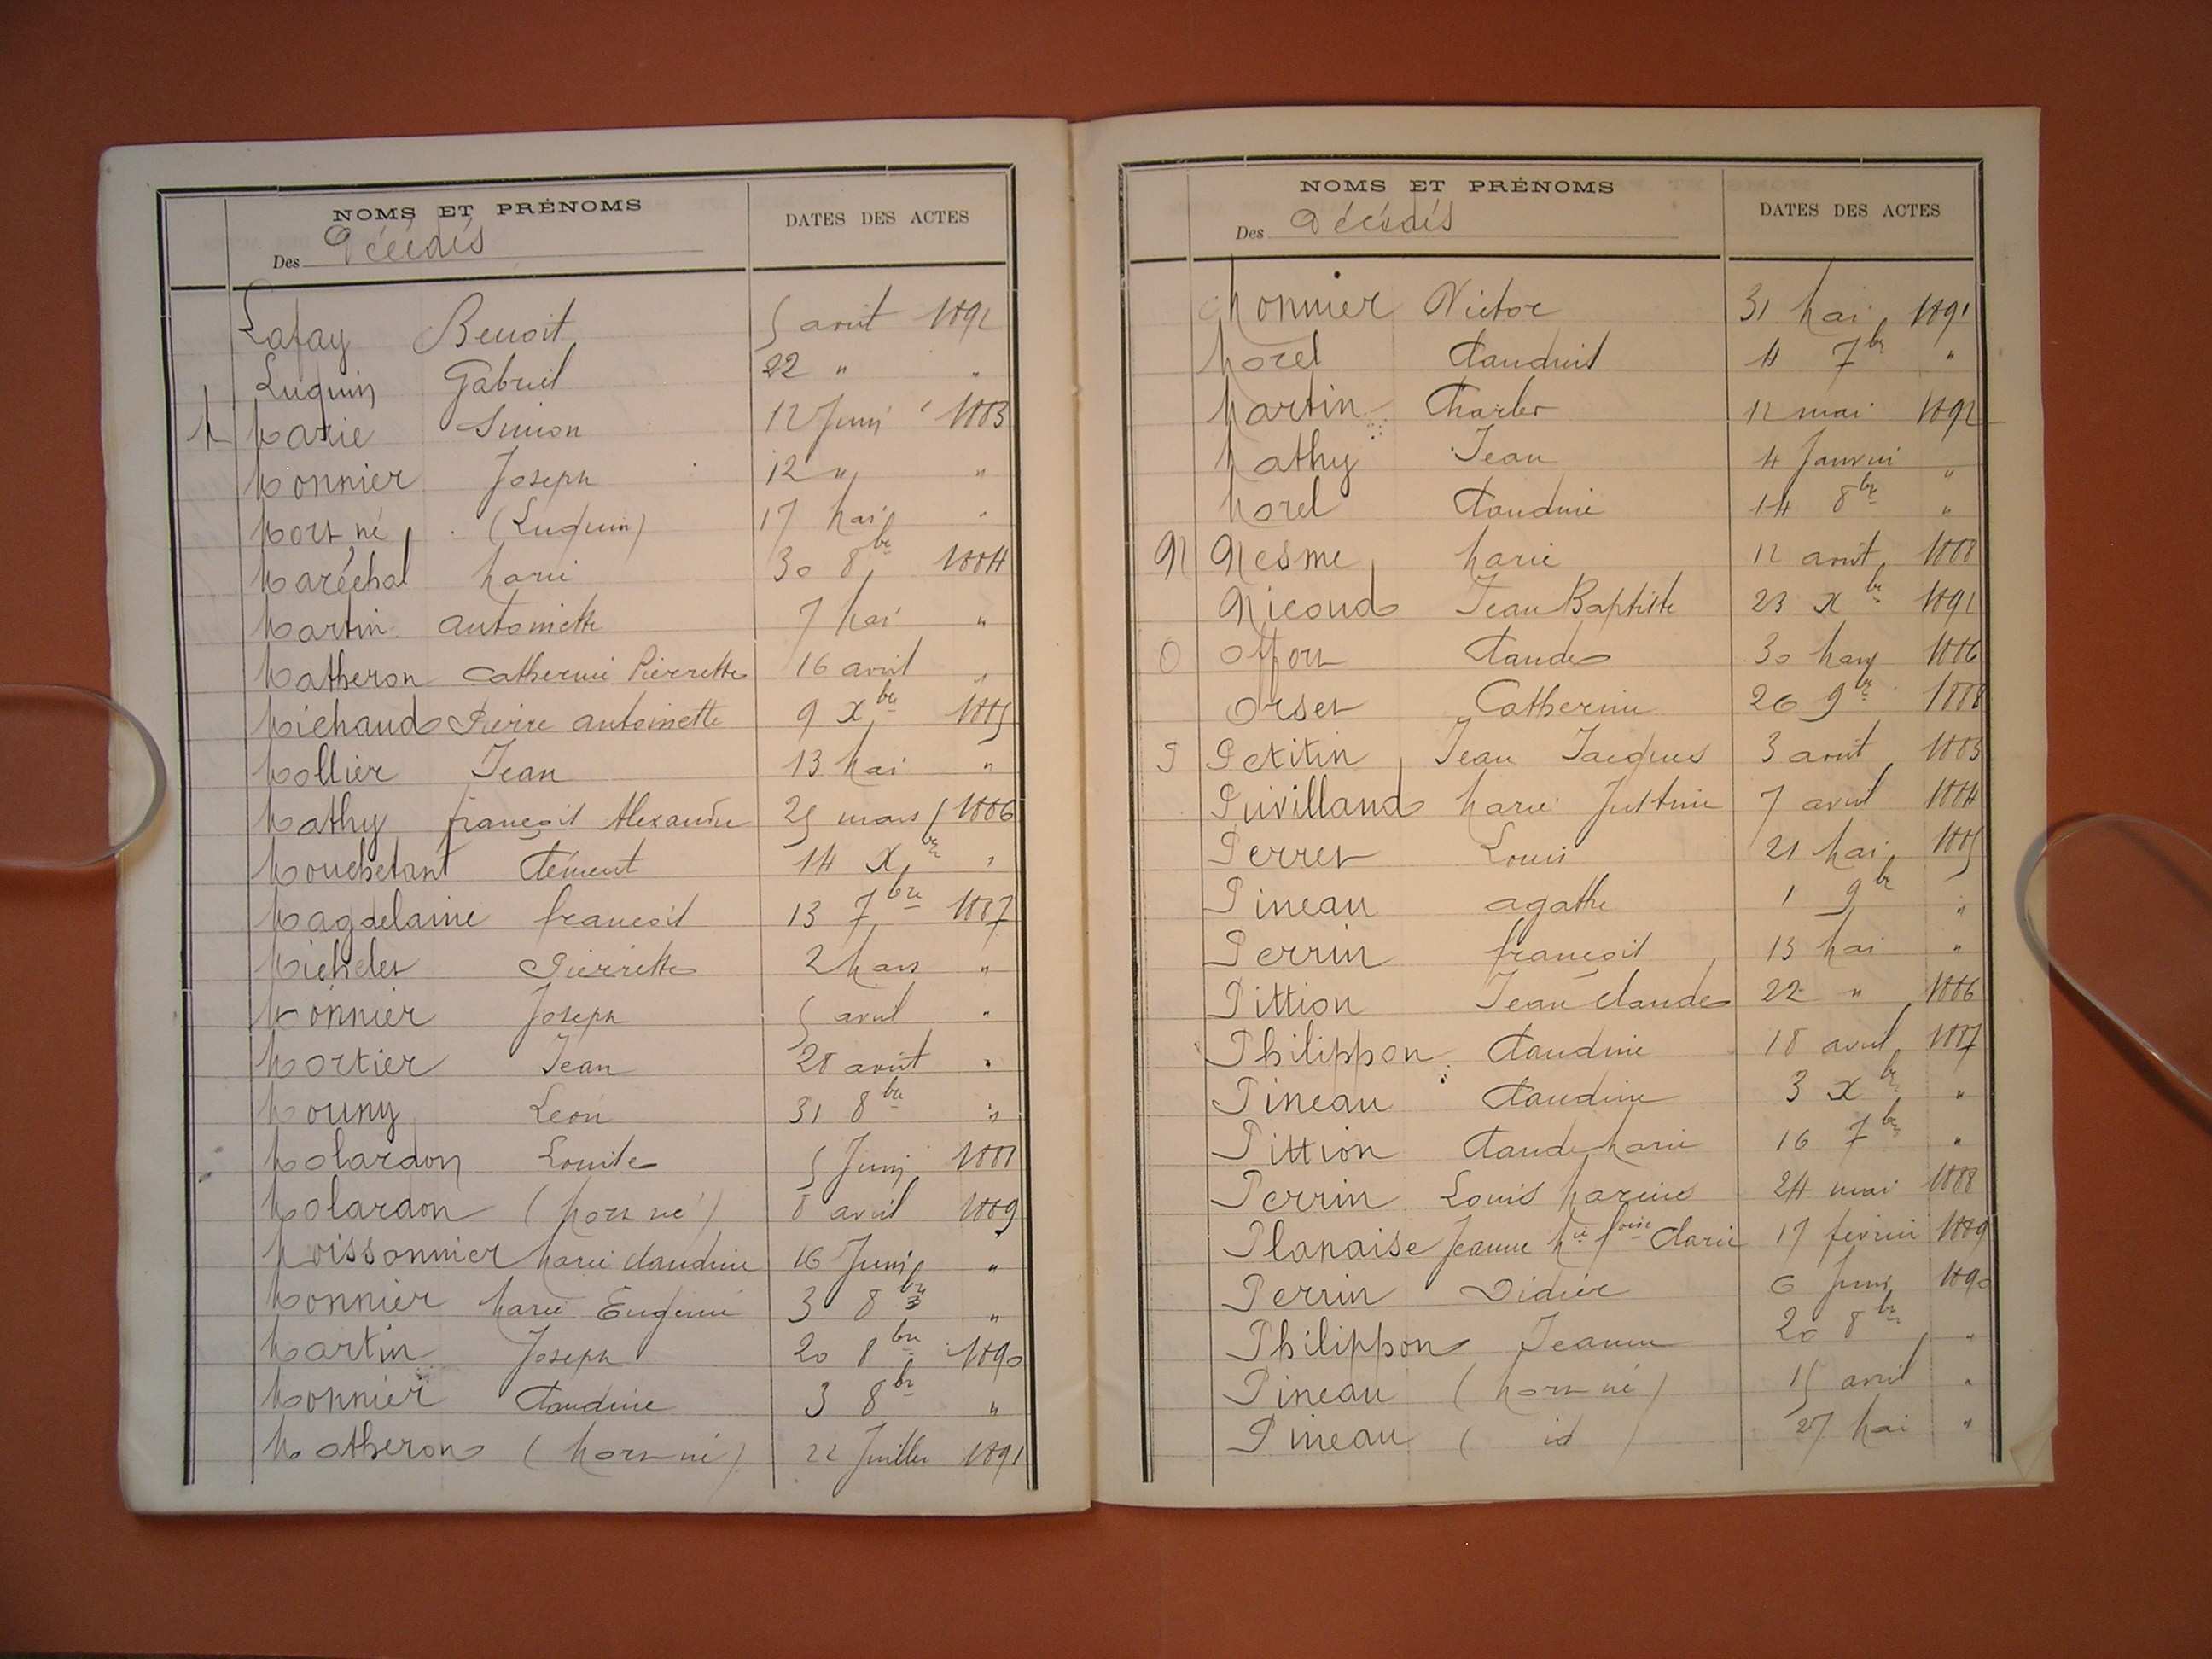 NOMS ET PRÉNOMS
DATES DES ACTES
Des Décédés
Lafay Benoit 5 août 1892
Luquin Gabriel 22 " "
M Marie Simon 12 Juin 1883
Monnier Joseph 12 " "
Mort né (Luquin) 17 Mai "
Maréchal Marie 30 8bre 1884
Martin Antoinette 7 Mai "
Matheron Catherine Pierrette 16 avril "
Michaud Pierre antoinette 9 Xbre 1885
Mollier Jean 13 Mai "
Mathy françois Alexandre 25 mars 1886
Mouchetant Clément 14 Xbre "
Magdelaine françois 13 7bre 1887
Michelet Pierrette 2 Mars "
Monnier Joseph 5 avril "
Mortier Jean 28 août "
Mouny Léon 31 8bre "
Molardon Louise 5 Juin 1888
Molardon (Mort né) 8 avril 1889
Moissonnier Marie Claudine 16 Juin "
Monnier Marie Eugénie 3 8bre "
Martin Joseph 20 8bre 1890
Monnier Claudine 3 8br "
Matheron (Mort né) 22 Juillet 1891
NOMS ET PRÉNOMS
DATES DES ACTES
Des Décédés
Monnier Victor 31 Mai 1891
Morel Claudius 4 7br "
Martin Charles 12 mai 1892
Mathy Jean 4 Janvier "
Morel Claudine 14 8br "
N Nesme Marie 12 août 1888
Nicoud Jean Baptiste 23 Xbr 1891
O Offort Claude 30 Mars 1886
Orset Catherine 26 9br 1888
P Petitin Jean Jacques 3 août 1883
Puivilland Marie Justine 7 avril 1884
Perret Louis 21 Mai 1885
Pineau agathe 1 9br "
Perrin françois 13 Mai "
Pittion Jean Claude 22 " 1886
Philippon Claudine 18 avril 1887
Pineau Claudine 3 Xbr "
Pittion Claude Marie 16 7br "
Perrin Louis Marius 24 mai 1888
Planaise Jeanne Mie foise Clarie 17 février 1889
Perrin Didier 6 Juin 1890
Philippon Jeanne 20 8br "
Pineau (Mort né) 15 avril "
Pineau ( id ) 27 Mai "